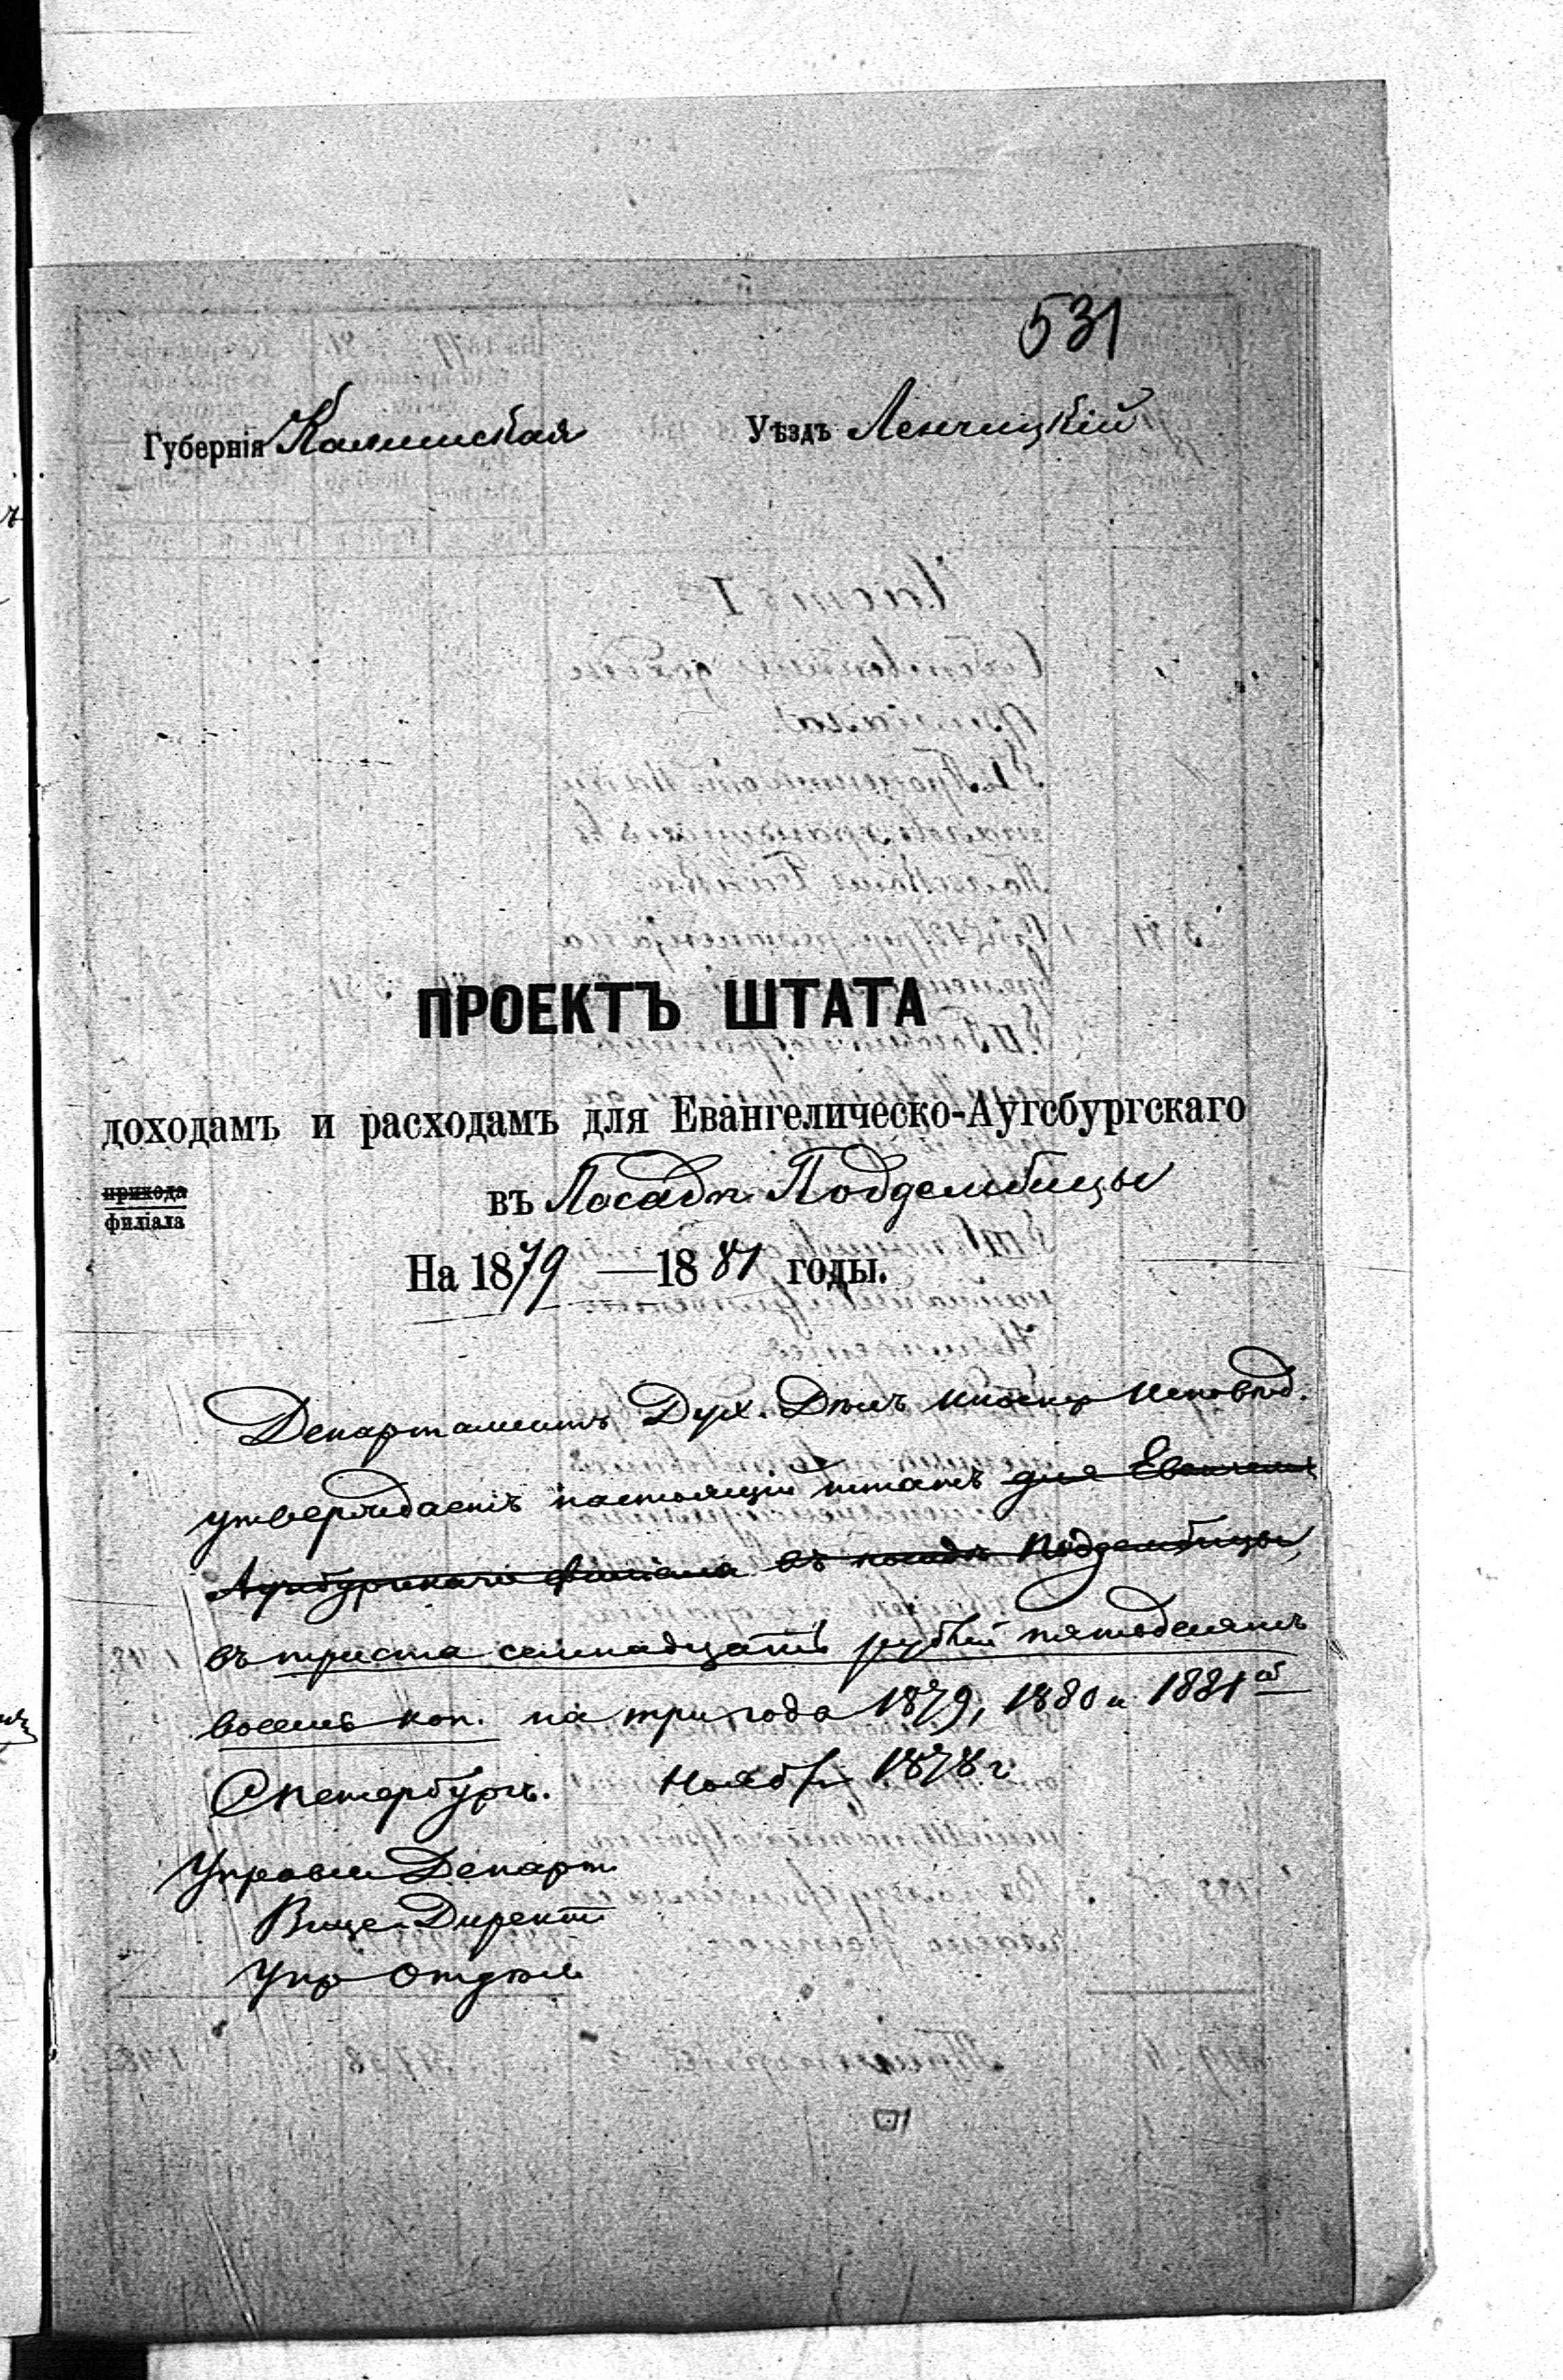 531
Губернія Калишская Уѣздъ Ленчицкій
ПРОЕКТЪ ШТАТА
доходамъ и расходамъ для Евангелическо-Аугсбургскаго
прихода
филіала
въ Посадѣ Поддембицы
На 1879 — 1881 годы.
Департаментъ Дух. Дѣлъ Иностр Исповѣд.
утверждаетъ настоящій штатъ для Евангел
Аугсбургскаго филіала въ посадѣ Поддембицы,
въ триста семнадцать рублей пятьдесятъ
восемь коп. на три года 1879, 1880 и 1881 й
СПетербургъ. Ноябр 1878 г.
Управл Департ.
Вице-Директ
Упр Отдѣл